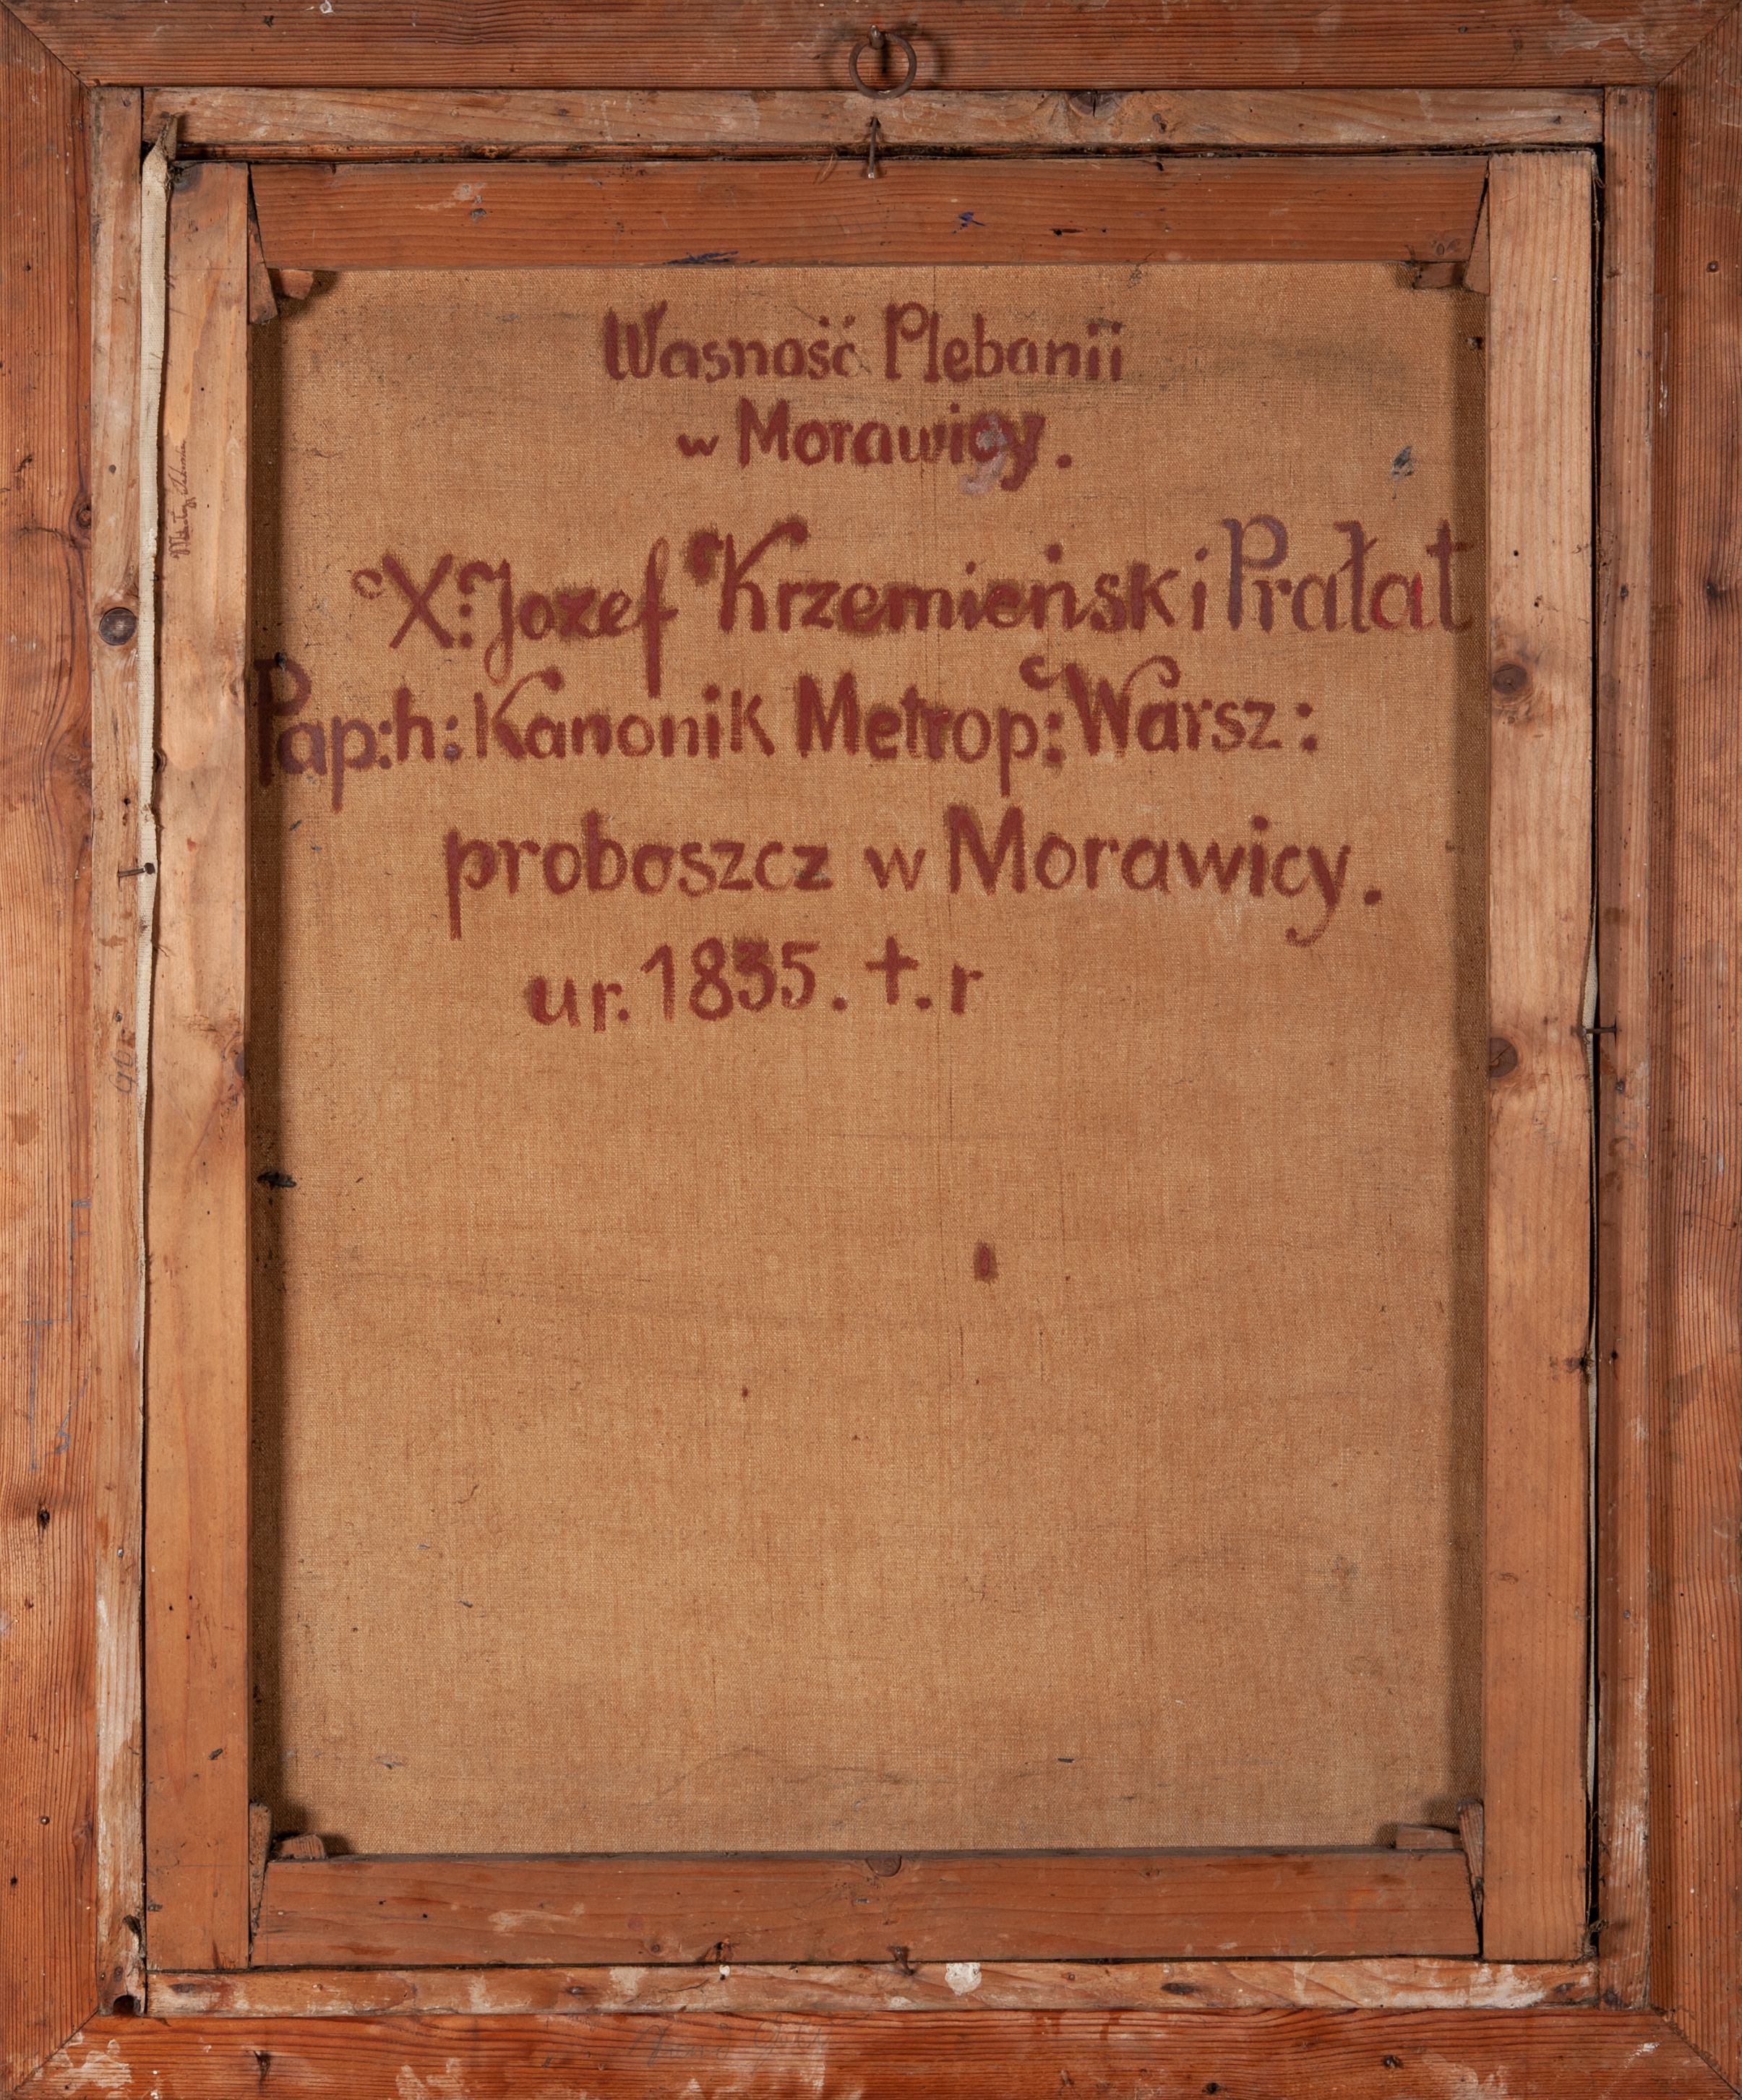 Wasność Plebanii
w Morawicy.
X: Jozef Krzemieński Prałat
Pap:h: Kanonik Metrop: Warsz:
proboszcz w Morawicy.
ur. 1835. †. r